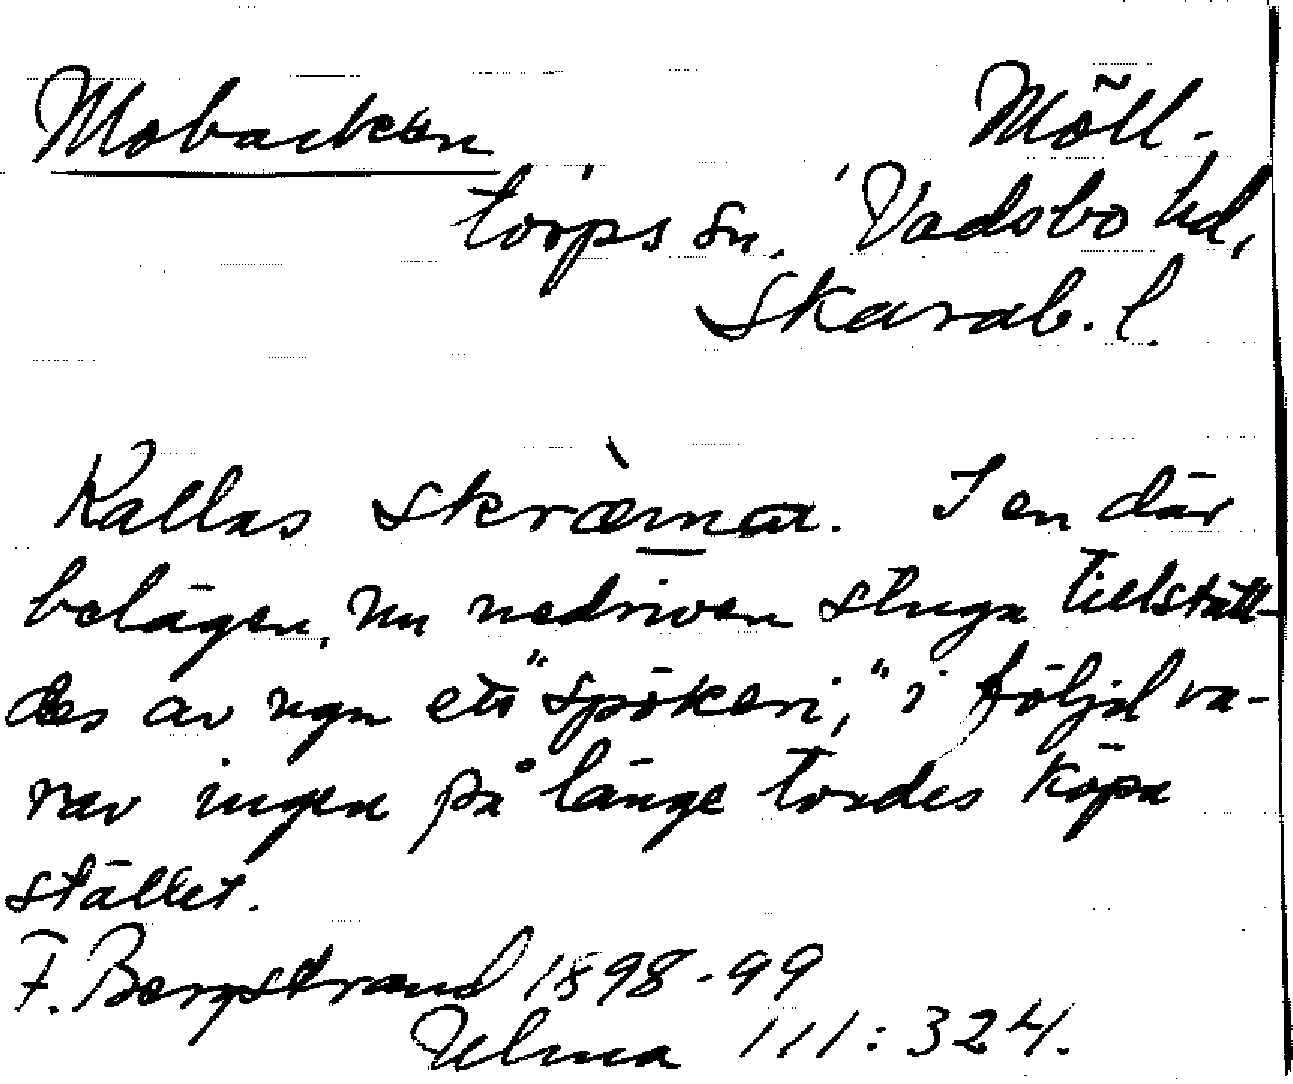 Mobacken Möll-
torps sn. Vadsbo hd,
Skarab. l.
Kallas skræ̀mar. I en där
belägen, nu nedriven stuga tillställ-
des av ngn ett "spökeri," i följd va-
rav ingen på länge tordes köpa
stället.
F. Bergstrand 1898-99
Ulma 111:324.